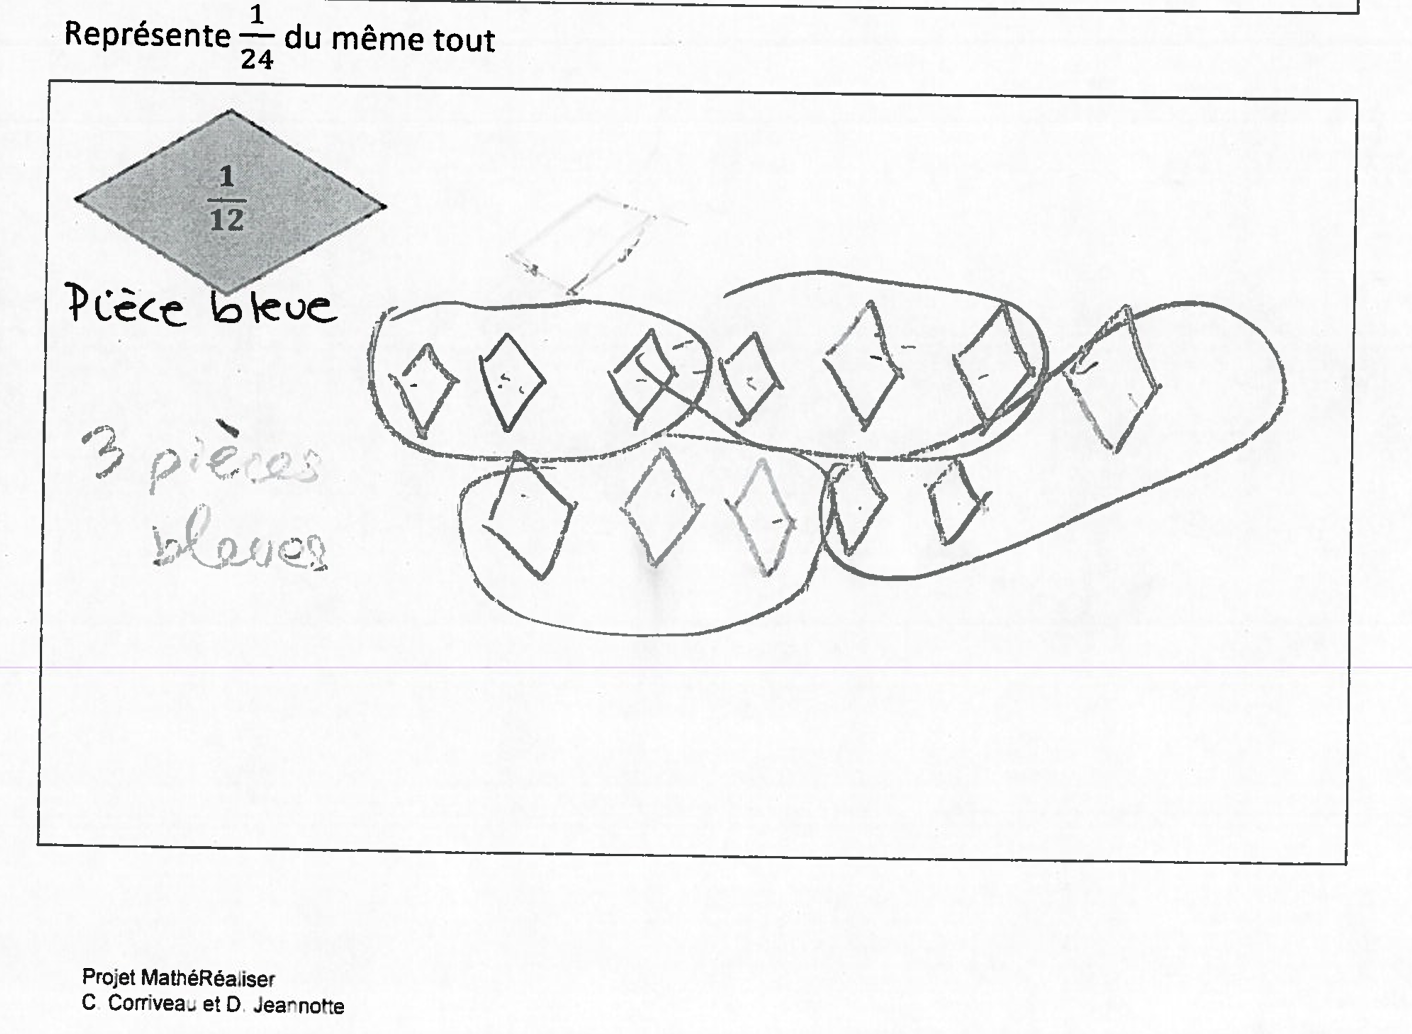 Représente 1/24 du même tout
1/12
Pièce bleue
3 pièces
bleues
Projet MathéRéaliser
C. Corriveau et D. Jeannotte